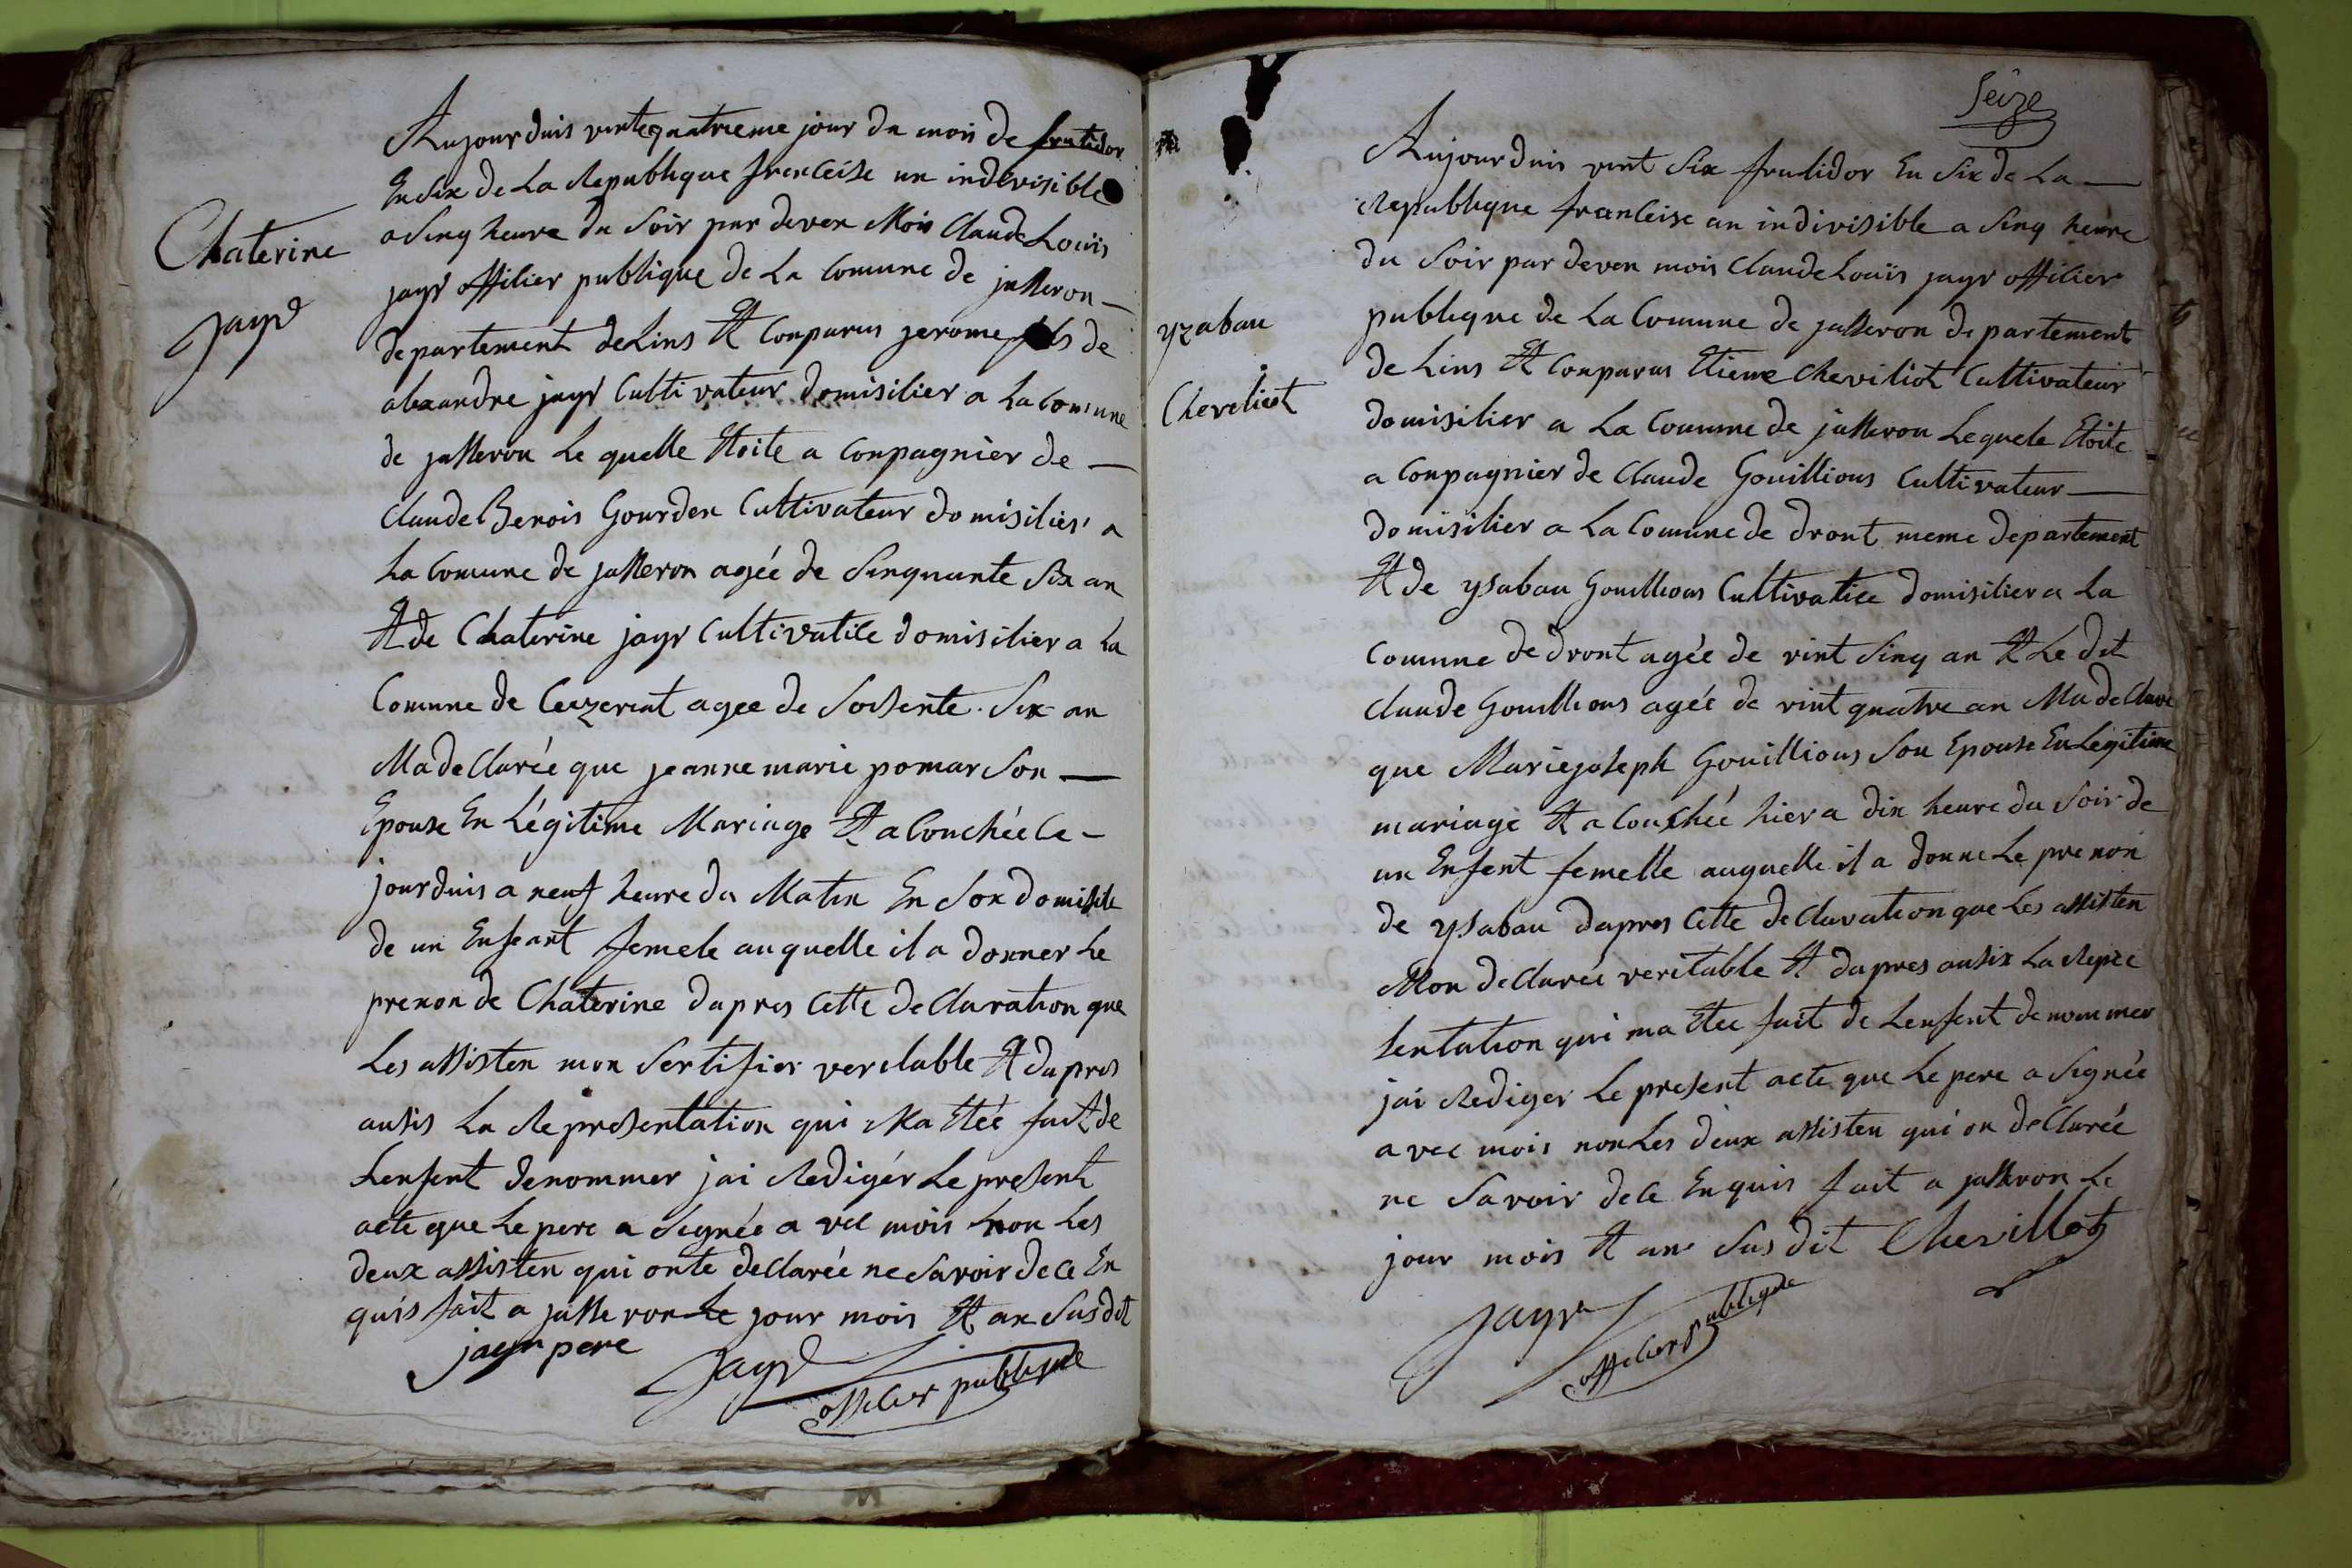 Chaterine
jayr
Aujourduis vintequatrieme jour du mois de frutidor
En Six de La Republique francéise un indévisible
a Sinq heure du Soir par deven Mois Claude Louïs
jayr offilier publique de La Comune de jasseron
departement de Lins Et Conparus jerome fils de
alexandre jayr Cultivateur domisilier a La Comune
de jasseron Le quelle Etoite a Conpagnier de
Claude Benois Gourden Cultivateur domisilier a
La Comune de jasseron agée de Sinquante Six an
Et de Chaterine jayr Cultivatice domisilier a La
Comune de Ceizeriat agee de Soisente Six an
Ma deClarée que jeanne marie pomar Son
Epouse En Légitime Mariage Et a Couchée Ce
jourduis a neuf heure du Matin En Son domisile
de un Enfeant femele auquelle il a donner Le
prenon de Chaterine dapres Cette deClaration que
Les assisten mon Sertifier veritable Et dapres
ausis La Representation qui Ma Etée fait de
Lenfent denommer jai Redigér Le present
acte que Le pere a Signée a vec mois non Les
deux assisten qui onte deClarée ne Savoir de Ce En
quis fait a jasseron Le jour mois Et an Susdit
jayr pere
Jayr
officier publique
Seize
yzabau
Cheveliot
Aujourduis vint Six frutidor En Six de La
Republique francéise un indivisible a Sinq heure
du Soir par deven mois Claude Louïs jayr offilier
publique de La Comune de jasseron departement
de Lins Et Conparus Etiene Cheviliot Cultivateur
domisilier a La Comune de jasseron Lequele Etoite
a Conpagnier de Claude Gouillious Cultivateur
domisilier a La Comune de dront meme departement
Et de ysabau Gouillious Cultivatice domisilier a La
Comune de dront agée de vint Sinq an Et Le dit
Claude Gouillious agée de vint quatre an Ma deClare
que Marie joseph Gouillious Son Epouse En Legitime
mariage Et a Couchée hier a dix heure du Soir de
un Enfent femelle auquelle il a donne Le prenon
de ysabau dapres Cette deClaration que Les assisten
Mon deClarée veritable Et dapres ausix La Repré
sentation qui ma Etee fait de Lenfent denommer
jai Rediger Le present acte que Le pere a Signée
a vec mois non Les deux assisten qui on deClarée
ne Savoir de Ce Enquis fait a jasseron Le
jour mois Et an Sus dit Chevillot
Jayr
officier publique